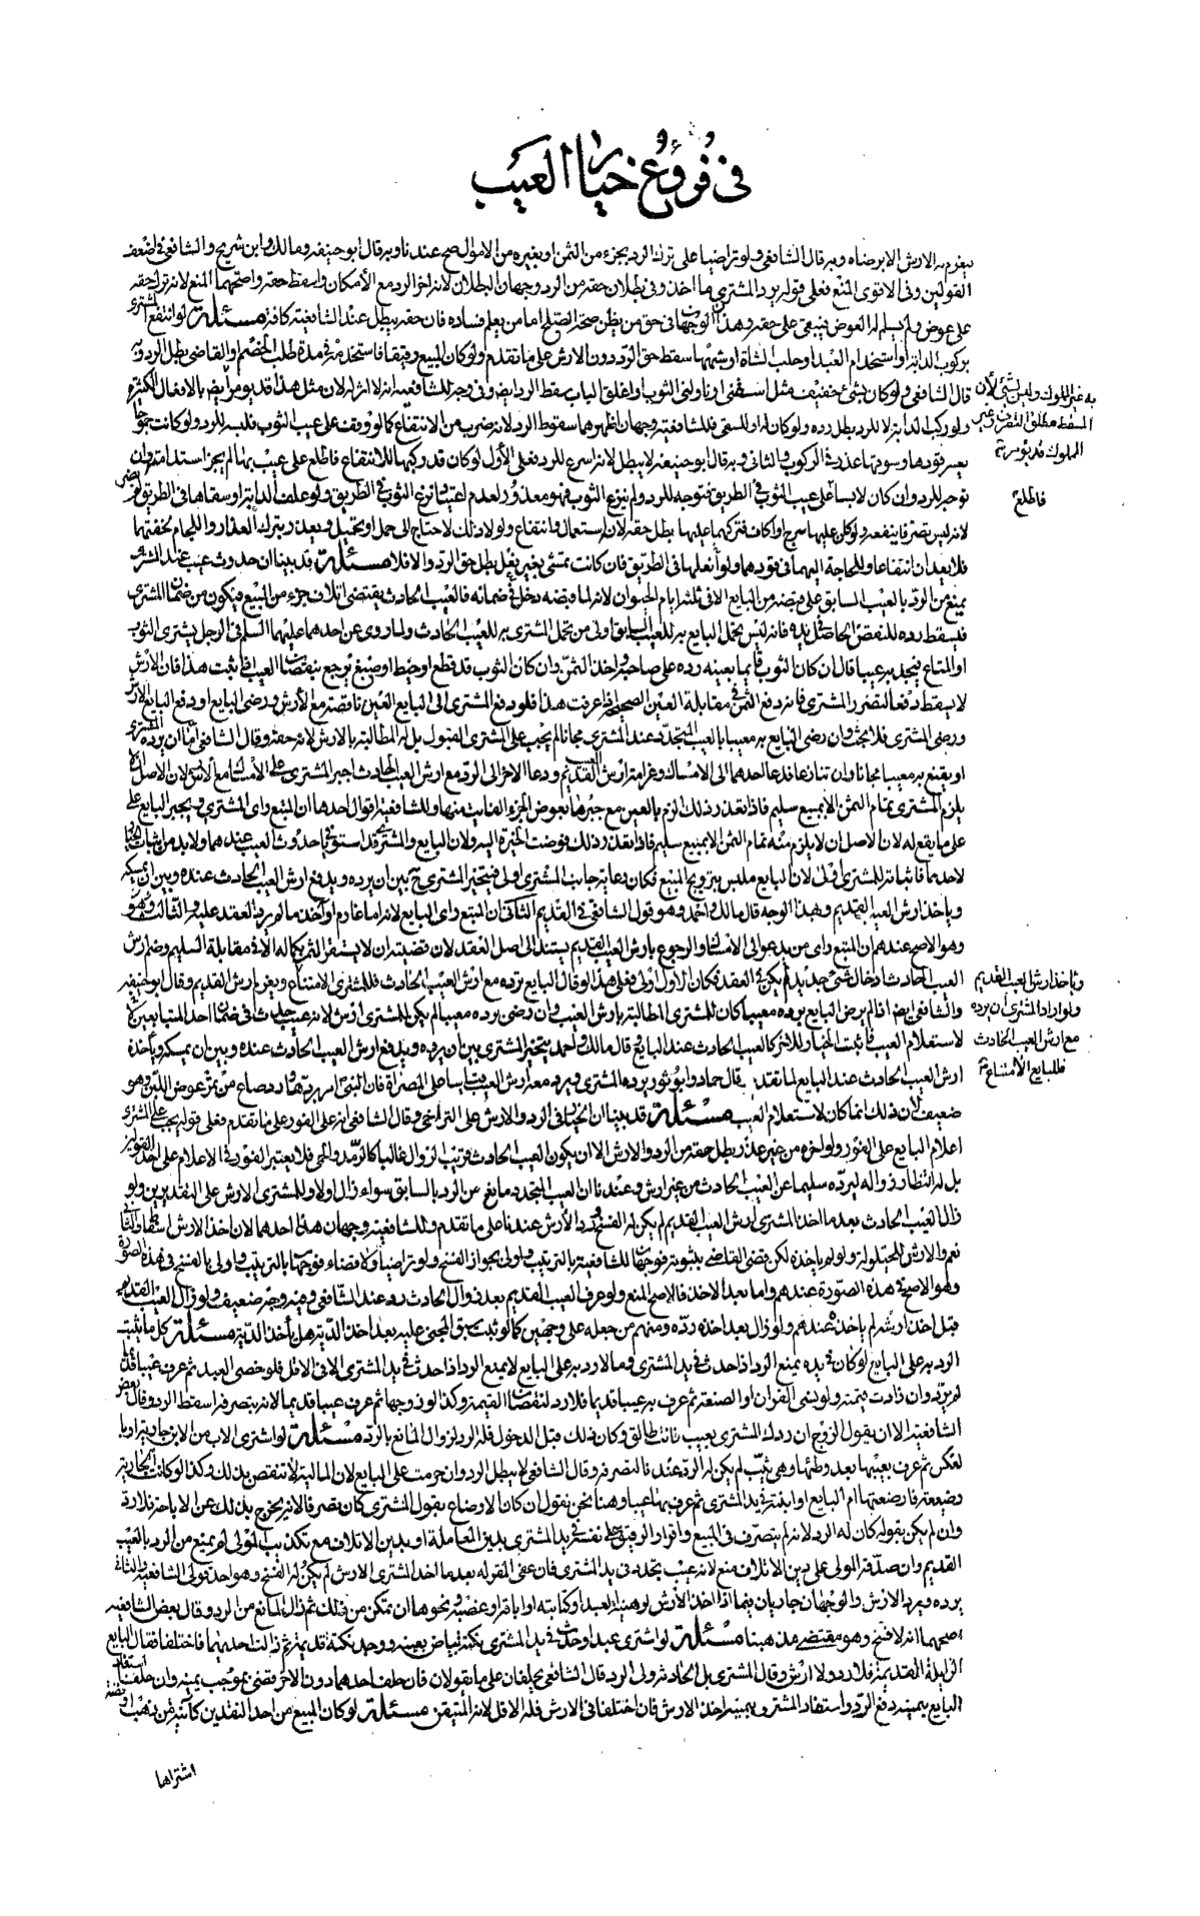 في فروع خيار العيب
يغرم به الارش الا برضاه وبه قال الشافعي ولو تراضيا على ترك الرد بجزء من الثمن او بغيره من الاموال صح عندنا وبه قال ابو حنيفة ومالك وابن شريح والشافعي في اضعف
القولين وفي الاقوى المنع فعلى قوله يرد المشتري ما اخذ وفي بطلان حقه من الرد وجهان البطلان لانه اخر الرد مع الامكان واسقط حقه واصحهما المنع لانه نزل حقه
على عوض ولم يسلم له العوض فيبقى على حقه وهذا الوجهان في حق من يظن صحة الصلح اما من يعلم فساده فان حقه يبطل عند الشافعية كافة مسئلة لو انتفع المشتري
بركوب الدابة او استخدام العبد او حلب الشاة او شبهها سقط حق الرد دون الارش على ما تقدم ولو كان المبيع رقيقا فاستخدمه في مدة طلب الخصم والقاضي بطل الرد وبه
قال الشافعي ولو كان بشئ خفيف مثل اسقني او ناولني الثوب او اغلق الباب سقط الرد ايضا وفي وجه للشافعية انه لا اثر له لان مثل هذا قد يؤمر به
ولو ركب الدابة لا للرد بطل رده ولو كان له او للسقي فللشافعية وجهان اظهرهما سقوط الرد لانه ضرب من الانتفاع كما لو وقف على عيب الثوب فلبسه للرد ولو كانت جموحا
يعسر قودها وسوقها عذر في الركوب والثاني وبه قال ابو حنيفة لا يبطل لانه اسرع للرد فعلى الأول لو كان قد ركبها للانتفاع فاطلع على عيب بها لم يجز استدامته وان
توجه للرد وان كان لابسا فاطلع على عيب الثوب في الطريق فتوجه للرد ولم ينزع الثوب فهو معذور لعدم اعتياد نزع الثوب في الطريق ولو علف الدابة او سقاها في الطريق لم يضر
لانه ليس تصرفا ينفعه ولو كان عليها سرج او اكاف فتركهما عليها بطل حقه لانه استعمال وانتفاع ولولا ذلك لاحتاج الى حمل او تحميل ويعذر بترك العذار واللجام لخفتهما
فلا يعد ان انتفاعا وللحاجة اليهما في قودها ولو انعلها في الطريق فان كانت تمشي بغير نعل بطل حق الرد والا فلا مسئلة قد بينا ان حدوث عيب عند المشتري
يمنع من الرد بالعيب السابق على قبضه من البايع الا في ثلثة ايام الحيوان لانه لما قبضه دخل في ضمانه فالعيب الحادث يقتضي اتلاف جزء من المبيع فيكون من ضمان المشتري
فيسقط رده للنقص الحاصل في يده فانه ليس تحمل البايع به للعيب السابق اولى من تحمل المشتري به للعيب الحادث ولما روي عن احدهما عليهما السلم في الرجل يشتري الثوب
او المتاع فيجد به عيبا قال ان كان الثوب قائما بعينه رده على صاحبه واخذ الثمن وان كان الثوب قد قطع او خيط او صبغ يرجع بنقصان العيب فاذا ثبت هذا فان الارش
لا يسقط دفعا لتضرر المشتري فانه دفع الثمن في مقابلة العين الصحيحة اذا عرفت هذا فلو دفع المشتري الى البايع العين ناقصة مع الأرش ورضي البايع او دفع البايع الارش
ورضي المشتري فلا بحث وان رضي البايع به معيبا بالعيب المتجدد عند المشتري مجانا لم يجب على المشتري القبول بل له المطالبة بالارش لانه حقه وقال الشافعي اما ان يرده المشتري
او يقنع به معيبا مجانا وان تنازعا فدعا احدهما الى الامساك وغرامة ارش العيب القديم ودعا الاخر الى الرد مع ارش العيب الحادث اجبر المشتري على الامساك مع الارش لان الاصل ان لا
يلزم المشتري تمام الثمن الا بمبيع سليم فاذا تعذر ذلك الزم بالعين مع جبرها بعوض الجزء الفايت منها وللشافعية اقوال احدها ان المتبع راي المشتري ويجبر البايع على
على ما يقع له لان الاصل ان لا يلزم منه تمام الثمن الا بمبيع سليم فاذا تعذر ذلك فوضت الخيرة اليه ولان البايع والمشتري قد استويا في حدوث العيب عندهما ولا بد من اثبات الخيار
لاحدهما فاثباته للمشتري اولى لان البايع ملبس بترويج المبيع فكان رعاية جانب المشتري اولى فيتخير المشتري ح بين ان يرده ويدفع ارش العيب الحادث عنده وبين ان يمسكه
وياخذ ارش العيب القديم وبهذا الوجه قال مالك واحمد وهو قول الشافعي في القديم الثاني ان المتبع راي البايع لانه اما غارم او آخذ ما لم يرد العقد عليه والثالث وهو
وهو الاصح عندهم ان المتبع راي من يدعو الى الامساك والرجوع بارش العيب القديم يستند الى اصل العقد لان قضيته ان لا يستقر الثمن بكماله الا في مقابلة السليم وضم ارش
العيب الحادث ادخال شئ جديد لم يكن في العقد فكان الاول اولى فعلى هذا لو قال البايع ترده مع ارش العيب الحادث فللمشتري الامتناع ويغرم ارش القديم وقال ابو حنيفة
والشافعي ايضا اذا لم يرض البايع برده معيبا كان للمشتري المطالبة بارش العيب وان رضي برده معيبا لم يكن للمشتري ارش لانه عيب حدث في ضمان احد المتبايعين لا
لاستعلام العيب فاثبت الخيار للاخر كالعيب الحادث عند البايع وقال مالك واحمد يتخير المشتري بين ان يرده ويدفع ارش العيب الحادث عنده وبين ان يمسكه وياخذ
ارش العيب الحادث عند البايع لما تقدم وقال حماد وابو ثور يرده المشتري ويرد معه ارش العيب قياسا على المصراة فان النبي امر بردها ورد صاع من تمر عوض اللبن وهو
ضعيف لان ذلك انما كان لاستعلام العيب مسئلة قد بينا ان الخيار في الرد والارش على التراخي وقال الشافعي انه على الفور على ما تقدم فعلى قوله يجب على المشتري
اعلام البايع على الفور ولو اخره من غير عذر بطل حقه من الرد والارش الا ان يكون العيب الحادث قريب الزوال غالبا كالرمد والحمى فلا يعتبر الفور في الاعلام على احد القولين
بل له انتظار زواله ليرده سليما عن العيب الحادث من غير ارش وعندنا ان العيب المتجدد مانع من الرد بالسابق سواء زال او لا وللمشتري الارش على التقديرين ولو
زال العيب الحادث بعد ما اخذ المشتري ارش العيب القديم لم يكن له الفسخ ورد الأرش عندنا على ما تقدم وللشافعية وجهان هذا احدهما لان اخذ الارش اسقاط والثاني
نعم والارش للحيلولة ولو لم ياخذه لكن قضى القاضي بثبوته فوجهان للشافعية بالترتيب واولى بجواز الفسخ ولو تراضيا ولا قضاء فوجهان بالترتيب واولى بالفسخ في هذه الصورة
وهو الاصح في هذه الصورة عندهم واما بعد الاخذ فالاصح المنع ولو عرف العيب القديم بعد زوال الحادث رده عند الشافعي وفيه وجه ضعيف ولو زال العيب القديم
قبل اخذ ارشه لم ياخذه عندهم ولو زال بعد اخذه رده ومنهم من جعله على وجهين كما لو نبتت سن المجني عليه بعد اخذ الدية هل يأخذ الدية مسئلة كل ما يثبت
الرد به على البايع لو كان في يده يمنع الرد اذا حدث في يد المشتري وما لا رد به على البايع لا يمنع الرد اذا حدث في يد المشتري الا في الاقل فلو خصى العبد ثم عرف عيبا قديما
لم يرد وان زادت قيمته ولو نسي القران او الصنعة ثم عرف به عيبا قديما فلا رد لنقصان القيمة وكذا لو زوجها ثم عرف عيبا قديما لانه بتصرفه اسقط الرد وقال بعض
الشافعية الا ان يقول الزوج ان ردك المشتري بعيب فانت طالق وكان ذلك قبل الدخول فله الرد لزوال المانع بالرد مسئلة لو اشترى الاب من الابن جارية او بالعكس
ثم عرف بعيبها بعد وطئها وهي ثيب لم يكن له الرد عندنا للتصرف وقال الشافعي لا يبطل الرد وان حرمت على البايع لان المالية لا تنقص بذلك وكذا لو كانت الجارية
رضيعة فارضعتها ام البايع او ابنته في يد المشتري ثم عرف بها عيبا وهنا نحن نقول ان كان الارضاع بقول المشتري كان تصرفا لانه يخرج بذلك عن الاباحة فلا رد
وان لم يكن بقوله كان له الرد لانه لم يتصرف في المبيع واقرار الرقيق على نفسه في يد المشتري بدين المعاملة او بدين الاتلاف مع تكذيب المولى لا يمنع من الرد بالعيب
القديم وان صدقه المولى على دين الاتلاف منع لانه عيب تجدد في يد المشتري فان عفى المقر له بعد ما اخذ المشتري الارش لم يكن له الفسخ وهو احد قولي الشافعية والثاني
يرده ويرد الارش والوجهان جاريان فيما اذا اخذ الأرش لرهنه العبد او كتابته او اباقه او غصبه ونحوها ان تمكن من ذلك ثم زال المانع من الرد وقال بعض الشافعية
اصحهما انه لا فسخ وهو مقتضى مذهبنا مسئلة لو اشترى عبدا وحدث في يد المشتري نكتة بياض بعينه ووجد نكتة قديمة ثم زالت احديهما فاختلفا فقال البايع
الزايلة القديمة فلا رد ولا ارش وقال المشتري بل الحادثة ولي الرد قال الشافعي يحلفان على ما يقولان فان حلف احدهما دون الاخر قضي بموجب يمينه وان حلفا استفاد
البايع بيمينه دفع الرد واستفاد المشتري بيمينه اخذ الارش فان اختلفا في الارش فله الاقل لانه المتيقن مسئلة لو كان المبيع من احد النقدين كآنية من ذهب او فضة
به غير المملوك وليس بشئ لأن
المسقط مطلق التصرف وغير
المملوك قد يؤمر به
فاطلع
وياخذ ارش العيب القديم
ولو اراد المشتري ان يرده
مع ارش العيب الحادث
فللبايع الامتناع
اشتراها